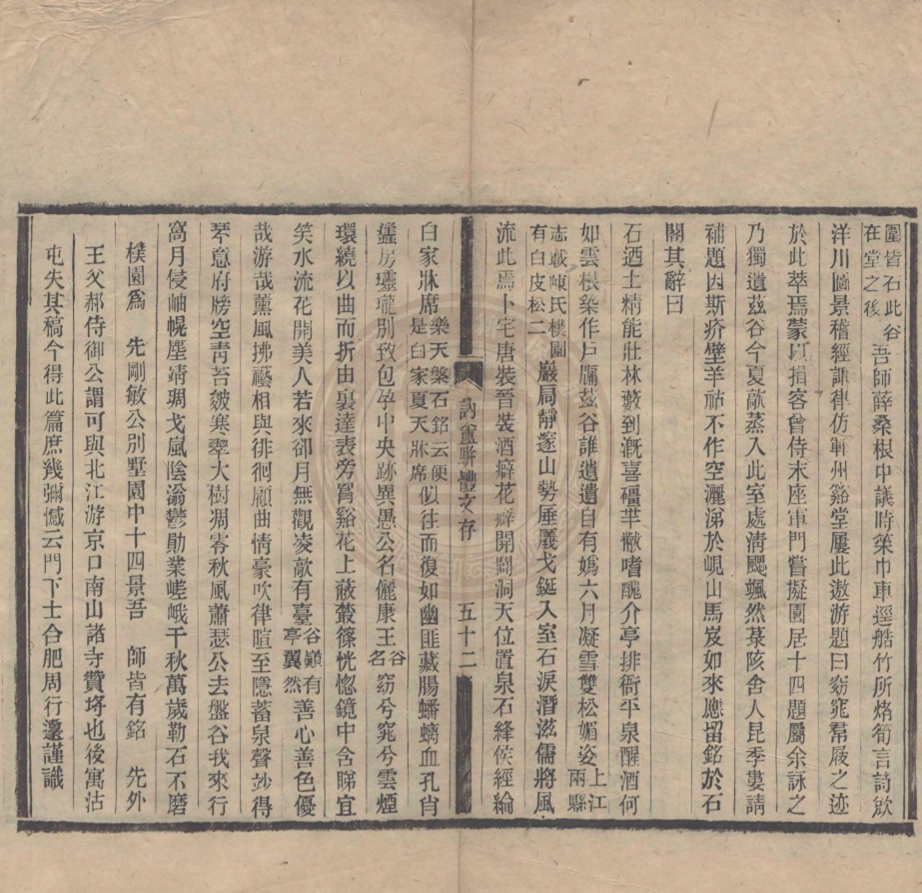 圍皆石此谷在堂之後吾師薛桑根中議時築巾車遥艁竹所烙筍言詩飲
洋川圖景稽經諏律仿鄆州谿堂屢此遨游題曰窈窕羣屐之迹
於此萃焉蒙以揖客曾侍末座軍門嘗擬園居十四題屬余詠之
乃獨遺茲谷今夏歊蒸入此室處淸颸颯然菉陔舍人昆季婁請
補題因斯疥壁羊祜不作空灑涕於峴山馬岌如來應留銘於石
閣其辭曰
石迺土精能壯林藪到漑喜礓芊黻嗜醜介亭排衙平泉醒酒何
如雲根染作戶牖茲谷誰遺遺自有嬀六月凝雪雙松媚姿上江兩縣
志載陳氏樸園有白皮松二巖扃靜邃山勢厜㕒戈鋋入室石淚潛滋儒將風
流此焉卜宅唐裝晉裝酒癖花癖開闢洞天位置泉石絳侯經綸
訥盦駢體文存 五十二
白家牀席樂天槃石銘云便是白家夏天牀席似往而復如幽匪藏腸蟠蜿血孔肖
蠭房瓏瓏別致包孕中央跡異愚公名儷康王谷名窈兮窕兮雲煙
環繞以曲而折由裏達表旁罥谿花上蔽叢篠恍惚鏡中含睇宜
笑水流花開美人若來卻月無觀凌歊有臺谷巔有亭翼然善心善色優
哉游哉薰風拂襼相與徘徊顧曲情豪吹律暄至隱蓄泉聲妙得
琴意府牓空靑苔皴寒翠大樹凋零秋風蕭瑟公去盤谷我來行
窩月侵岫幌塵靖琱戈嵐陰滃鬱勛業嵯峨千秋萬歲勒石不磨
樸園爲 先剛敏公別墅園中十四景吾 師皆有銘 先外
王父郝侍御公謂可與北江游京口南山諸寺贊埒也後寓沽
屯失其稿今得此篇庶幾彌憾云門下士合肥周行謹識